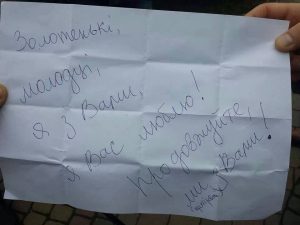 Золотенькі,
молодці,
я з Вами,
я Вас люблю!
продовжуйте,
ми з Вами!